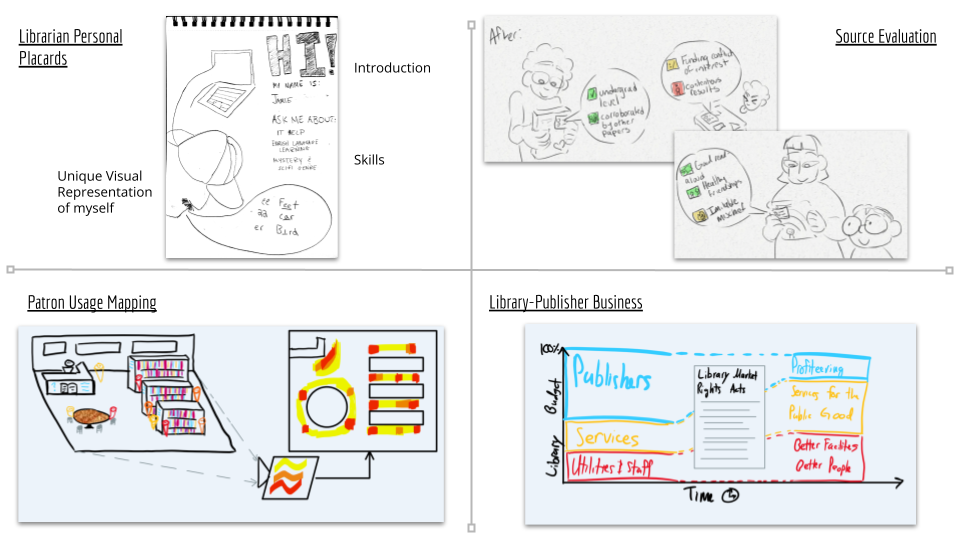 Librarian Personal
Placards
HI!
MY NAME IS:
JAMIE
ASK ME ABOUT:
IT HELP
ENGLISH LANGUAGE
LEARNING
MYSTERY &
SCIFI GENRE
ee Feet
aa car
er Bird
Introduction
Skills
Unique Visual
Representation
of myself
Source Evaluation
After:
undergrad
level
collaborated
by other
papers
Funding conflict
of interest
contentious
results
Good read
aloud
Healthy
Friendships
mischief
Patron Usage Mapping
Library-Publisher Business
100%
Library Budget
Publishers
Services
Utilities & Staff
Library Market
Rights Acts
Profiteering
Services for the
Public Good
Better Facilites
Better People
TIME